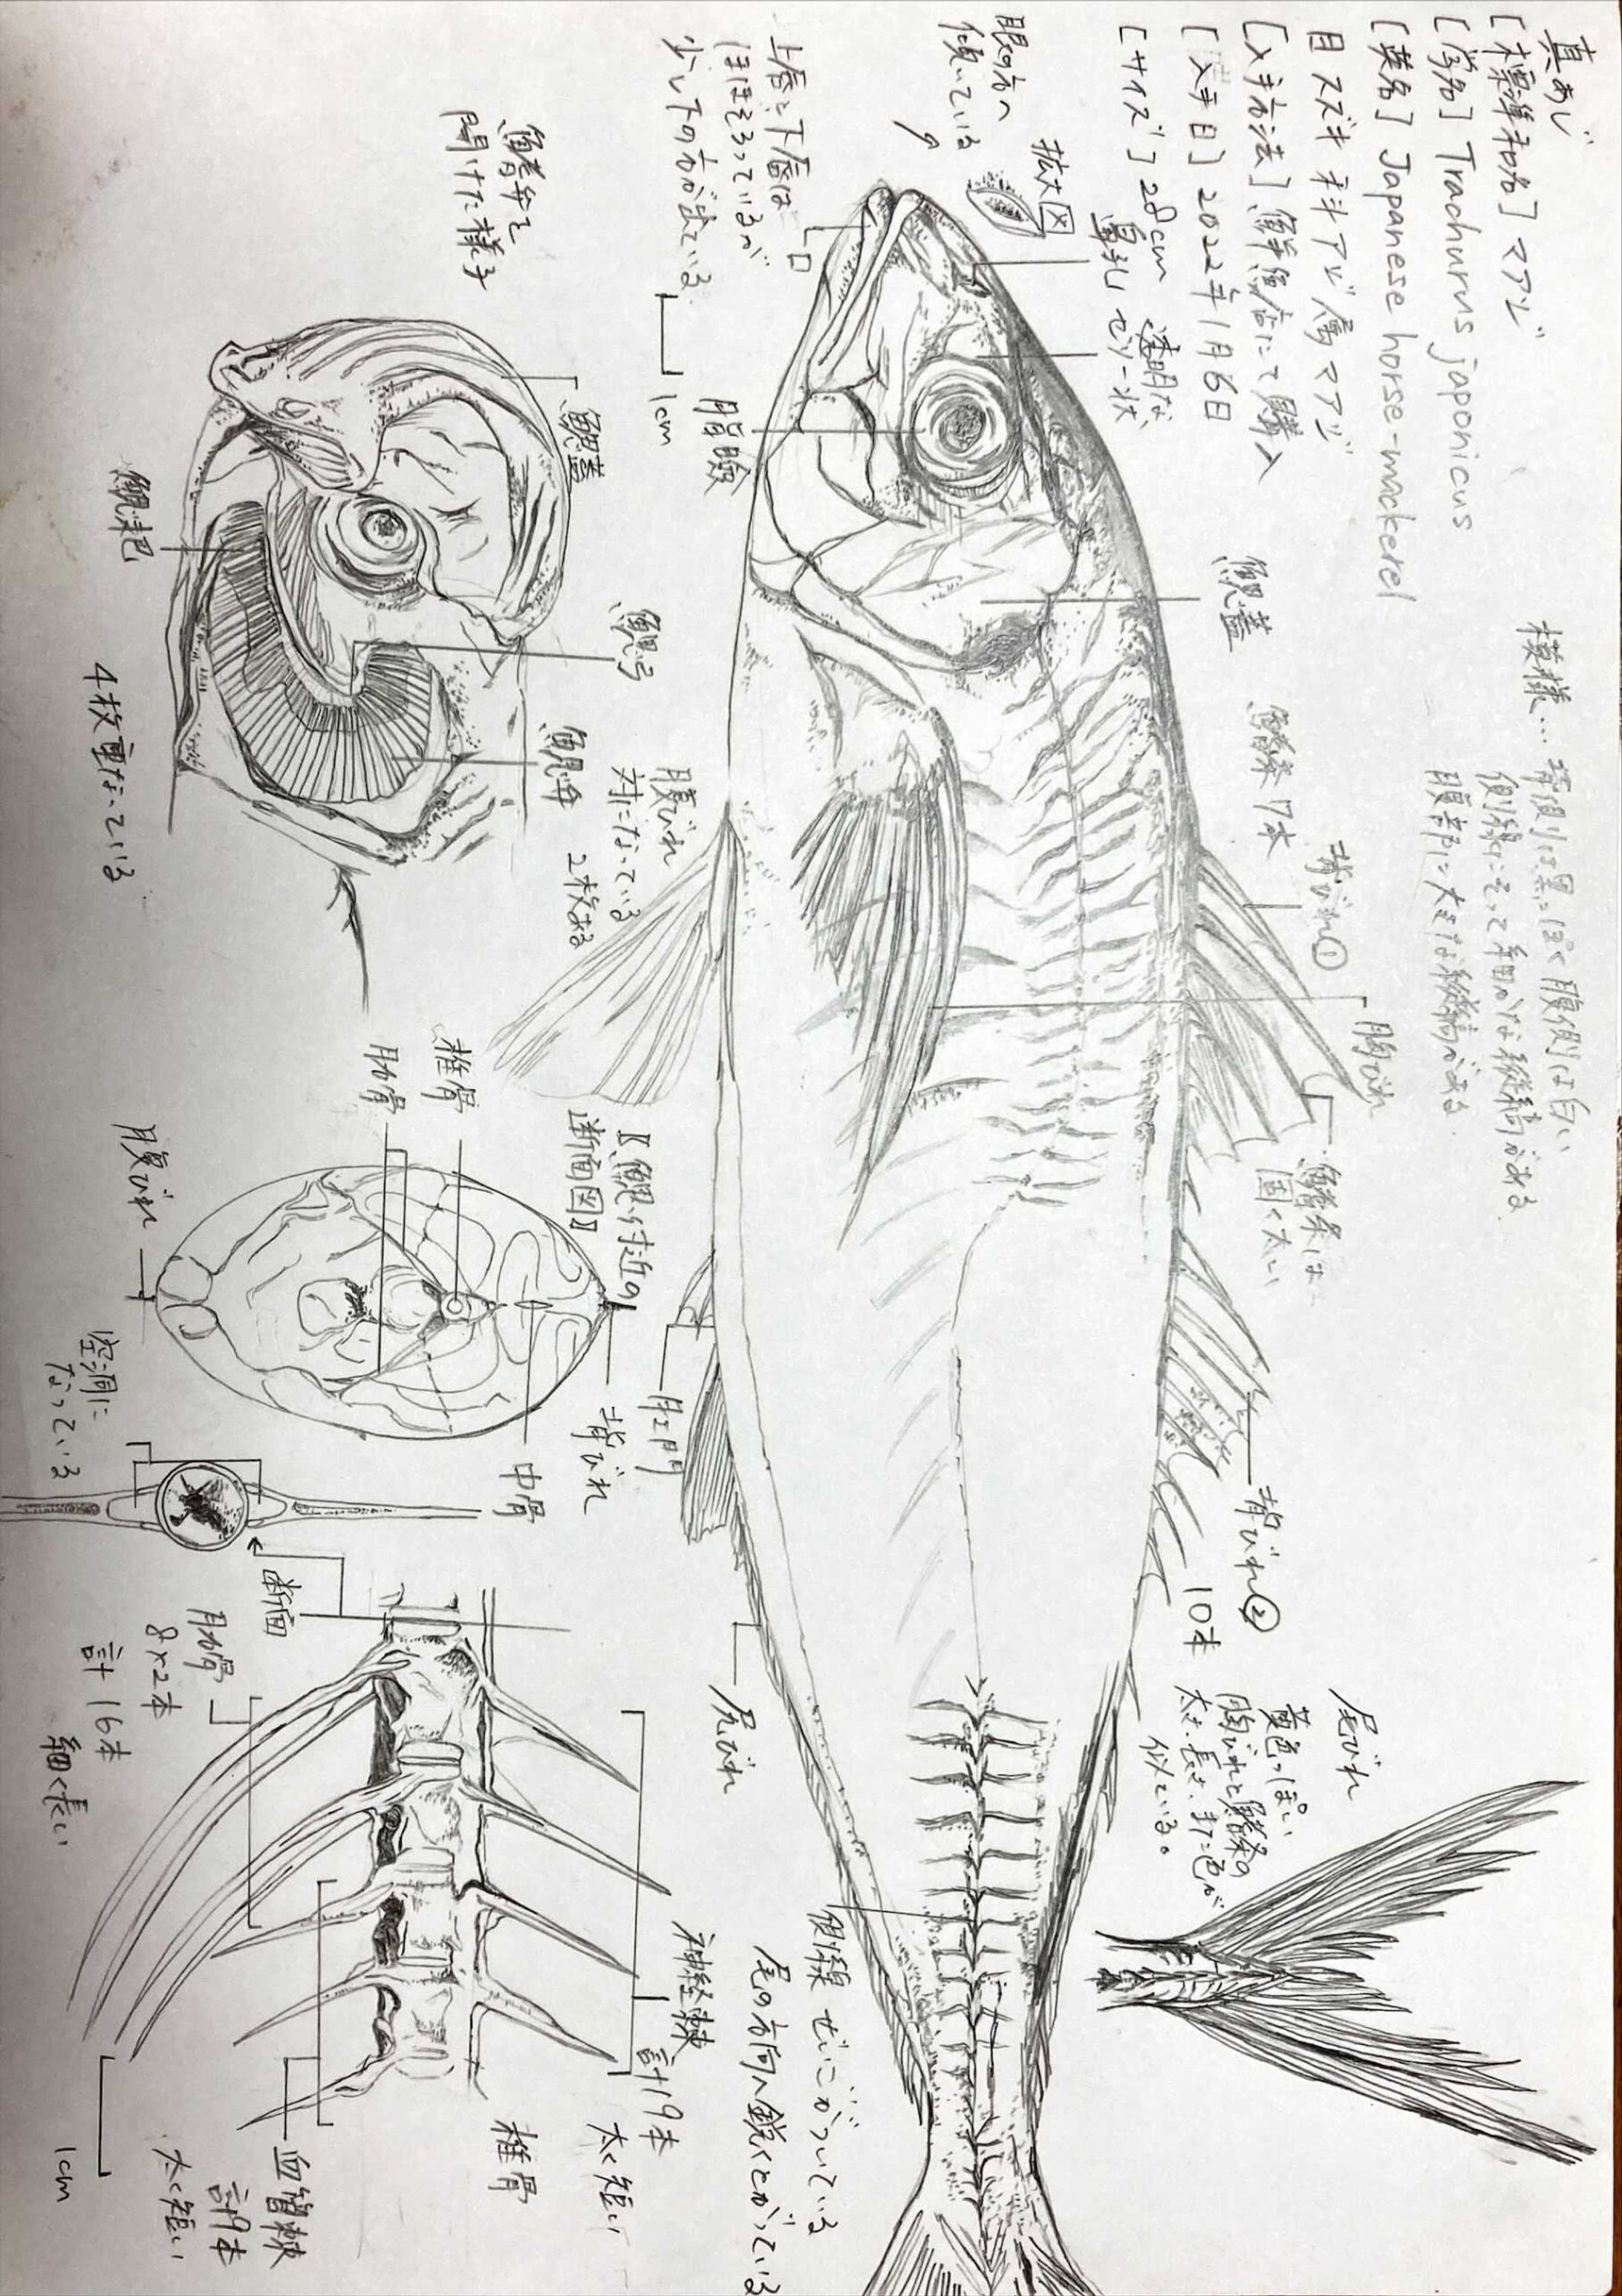 真あじ
[標準和名] マアジ
[学名] Trachurus japonicus
[英名] Japanese horse-mackerel
目 スズキ 科 アジ 属 マアジ
[入手方法] 鮮魚店にて購入
[入手日] 2022年1月6日
[サイズ] 28cm
模様… 背側は黒っぽく腹側は白い
側線にそって細かな縦縞がある
腹部に大きな縦縞がある
拡大図
眼の方へ
傾いている
鼻孔
透明な
ゼリー状
上唇と下唇は
ほぼそろっているが
少し下の方が出ている
口
1cm
脂瞼
鰓蓋
鰭条 7本
背びれ①
胸びれ
鰭条は
固く太い
背びれ②
10本
尾びれ
黄色っぽい
胸びれと鰭条の
太さ、長さ、また色が
似ている。
腹びれ
対になっている
2枚ある
肛門
尻びれ
側線 ぜいごがついている
尾の方向へ鋭くとがっている
開けた様子
鰓蓋
鰓耙
鰓弓
鰓弁
4枚重なっている
【鰓付近の
断面図】
椎骨
肋骨
腹びれ
背びれ
中骨
空洞に
なっている
断面
肋骨
8×2本
計16本
細く長い
神経棘
計19本
太く短い
椎骨
血管棘
計9本
太く短い
1cm